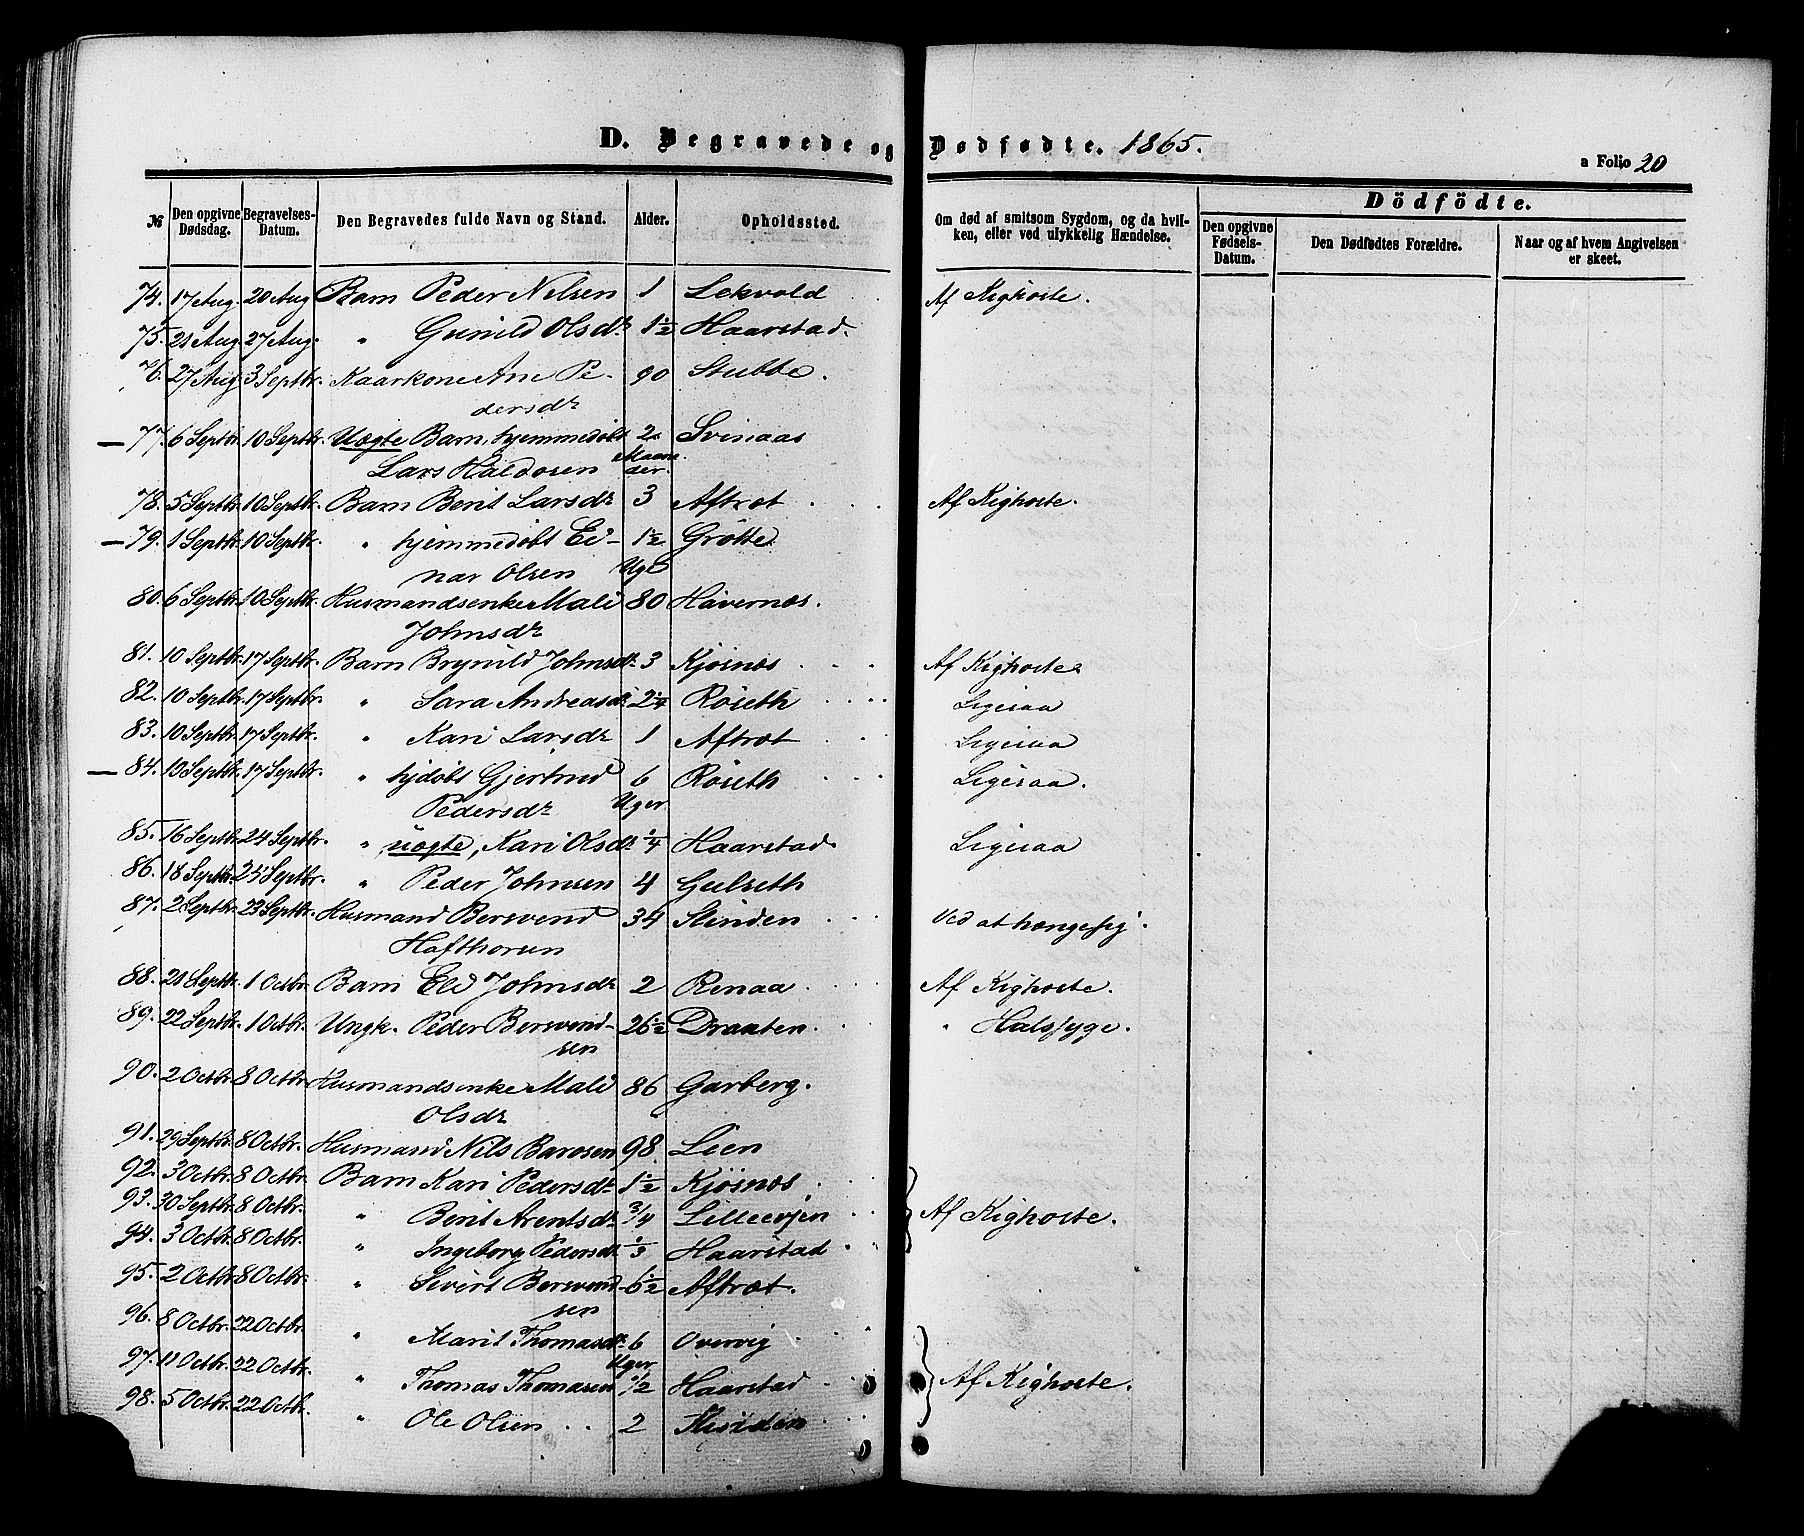 D. Begravede og Dødfødte. 1865.
a Folio 20
№ Den opgivne Dødsdag. Begravelses-Datum. Den Begravedes fulde Navn og Stand. Alder. Opholdssted. Om død af smitsom Sygdom, og da hvilken, eller ved ulykkelig Hændelse. Dödfödte. Den opgivne Fødsels-Datum. Den Dødfødtes Forældre. Naar og af hvem Angivelsen er skeet.
74. 17 Aug. 20 Aug Barn Peder Nilsen 1 Lekvold Af Kighoste.
75. 21 Aug. 27 Aug. " Gunild Olsdr 1½ Haarstad.
76. 27 Aug. 3 Septbr. Kaarkone Ane Pe- 90 Stubbe.
dersdr
77. 6 Septbr. 10 Septbr. Uægte Barn, hjemmedøbt 2 Svinaas
Lars Haldosen Maaneder.
78. 5 Septbr. 10 Septbr. Barn Berit Larsdr 3 Aftræt Af Kighoste.
79. 1 Septbr. 10 Septbr. " hjemmedøbt Ei- 1½ Grötte
nar Olsen Uge
80. 6 Septbr. 10 Septbr. Husmandsenke Mali 80 Havernæs.
Johnsdr
81. 10 Septbr. 17 Septbr. Barn Brynild Johnsdr. 3 Kjøsnæs Af Kighoste
82. 10 Septbr. 17 Septbr. " Sara Andreasdr 2¼ Röseth Ligesaa
83. 10 Septbr. 17 Septbr. " Kari Larsdr 1 Aftræt Ligesaa
84. 13 Septbr. 17 Septbr. " hjdøbt Gjertrud 6 Röseth Ligesaa.
Pedersdr Uger
85. 16 Septbr. 24 Septbr. " uægte, Kari Olsdr ¼ Haarstad. Ligesaa
86. 18 Septbr. 25 Septbr. " Peder Johnsen 4 Gulseth
87. 2 Septbr. 23 Septbr. Husmand Bersvend 34 Slinden Ved at hænge sig.
Hafthorsen
88. 21 Septbr. 1 Octbr. Barn Eli Johnsdr 2 Renaa Af Kighoste.
89. 22 Septbr. 1 Octbr. Ungk. Peder Bersvend- 26½ Draaten " Halssyge.
sen
90. 2 Octbr. 8 Octbr. Husmandsenke Mali 86 Garberg.
Olsdr
91. 29 Septbr. 8 Octbr. Husmand Nils Barosen 98. Leen
92. 3 Octbr. 8 Octbr. Barn Kari Pedersdr. 1½ Kjøsnæs
93. 30 Septbr. 8 Octbr. " Berit Arentsdr. ¾ Lilleevjen Af Kighoste.
94. 3 Octbr. 8 Octbr. " Ingeborg Pedersdr. ⅓ Haarstad
95. 2 Octbr. 8 Octbr. " Sivert Bersvend- 6½ Aftræt.
sen
96. 8 Octbr. 22 Octbr. " Marit Thomasdr. 6 Overvig
Uger
97. 11 Octbr. 22 Octbr. " Thomas Thomasen ½ Haarstad Af Kighoste.
98. 5 Octbr. 22 Octbr. " Ole Olsen 2